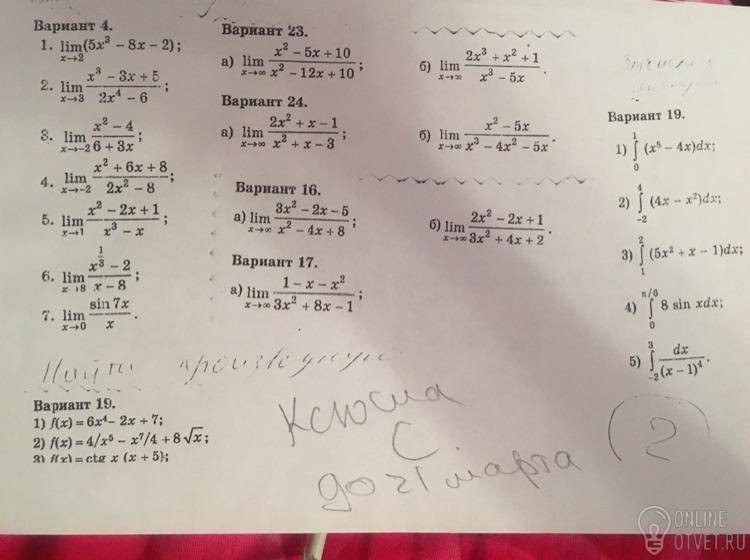 Вариант 4.
1. lim x→2 (5x³ − 8x − 2);
2. lim x→3 (x³ − 3x + 5)/(2x⁴ − 6);
3. lim x→−2 (x² − 4)/(6 + 3x);
4. lim x→−2 (x² + 6x + 8)/(2x² − 8);
5. lim x→1 (x² − 2x + 1)/(x³ − x);
6. lim x→8 (x^(1/3) − 2)/(x − 8);
7. lim x→0 (sin 7x)/x.
Вариант 23.
а) lim x→∞ (x² − 5x + 10)/(x² − 12x + 10);
б) lim x→∞ (2x³ + x² + 1)/(x³ − 5x).
Вариант 24.
а) lim x→∞ (2x² + x − 1)/(x² + x − 3);
б) lim x→∞ (x² − 5x)/(x³ − 4x² − 5x).
Вариант 16.
а) lim x→∞ (3x² − 2x − 5)/(x² − 4x + 8);
б) lim x→∞ (2x² − 2x + 1)/(3x² + 4x + 2).
Вариант 17.
а) lim x→∞ (1 − x − x²)/(3x² + 8x − 1);
Вариант 19.
1) ∫₀¹ (x⁵ − 4x)dx;
2) ∫₋₂⁴ (4x − x²)dx;
3) ∫₁² (5x² + x − 1)dx;
4) ∫₀^(π/6) 8 sin xdx;
5) ∫₋₂³ dx/(x − 1)⁴.
Найти производную
Вариант 19.
1) f(x) = 6x⁴ − 2x + 7;
2) f(x) = 4/x⁵ − x⁷/4 + 8√x;
3) f(x) = ctg x (x + 5);
С
до 21 марта
2
ONLINE
OTVET.RU